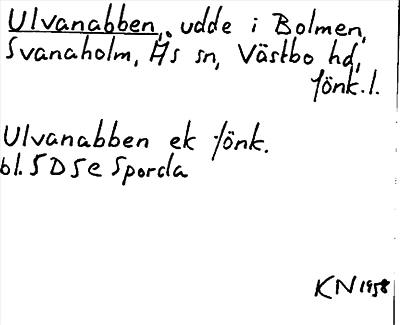 Ulvanabben, udde i Bolmen,
Svanaholm, Ås sn, Västbo hd,
Jönk. l.
Ulvanabben ek Jönk.
bl. 5 D 5 e Sporda
KN 1958